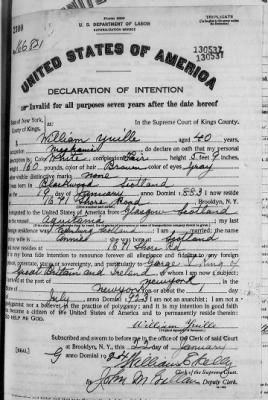 Form 2203
U. S. DEPARTMENT OF LABOR
NATURALIZATION SERVICE
TRIPLICATE
130537
130537
UNITED STATES OF AMERICA
DECLARATION OF INTENTION
Invalid for all purposes seven years after the date hereof
State of New York,
County of Kings,
In the Supreme Court of Kings County.
I, William aged 40 years,
occupation Mechanic do declare on oath that my personal
description is: Color White, complexion Fair, height 5 feet 9 inches,
weight 160 pounds, color of hair Brown, color of eyes Gray
other visible distinctive marks none
I was born in Scotland
on the 19 day of January, anno Domini 1883; I now reside
at 1671 Shore Road Brooklyn, N. Y.
I emigrated to the United States of America from Glasgow Scotland
on the vessel Aquitania; my last
foreign residence was Scotland; I am married; the name
of my wife is; she was born at Scotland
and now resides at 1671 Shore Rd
It is my bona fide intention to renounce forever all allegiance and fidelity to any foreign
prince, potentate, state, or sovereignty, and particularly to George V King of
Great Britain and Ireland of whom I am now a subject;
I arrived at the port of New York, in the
State of New York on or about the 1 day
of July, anno Domini 1923; I am not an anarchist; I am not a
polygamist nor a believer in the practice of polygamy; and it is my intention in good faith
to become a citizen of the United States of America and to permanently reside therein:
SO HELP ME GOD.
William
Subscribed and sworn to before me in the office of the Clerk of said Court
at Brooklyn, N. Y., this 22 day of January
[SEAL] anno Domini
William E. Kelly
Clerk of the Supreme Court.
John M.
Deputy Clerk.